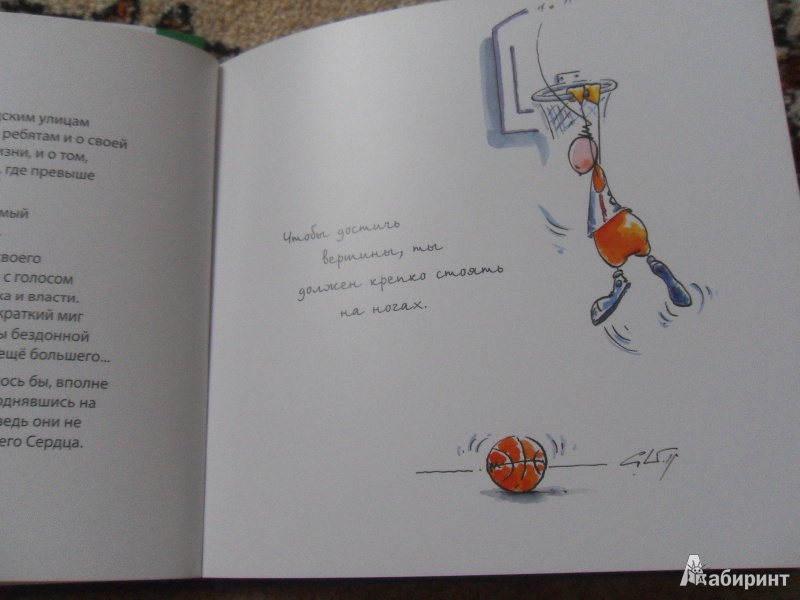 ским улицам
ребятам и о своей
зни, и о том,
, где превыше
мый
воего
с голосом
ка и власти.
краткий миг
ы бездонной
ещё большего...
ось бы, вполне
однявшись на
ведь они не
его Сердца.
Чтобы достичь
вершины, ты
должен крепко стоять
на ногах.
Лабиринт